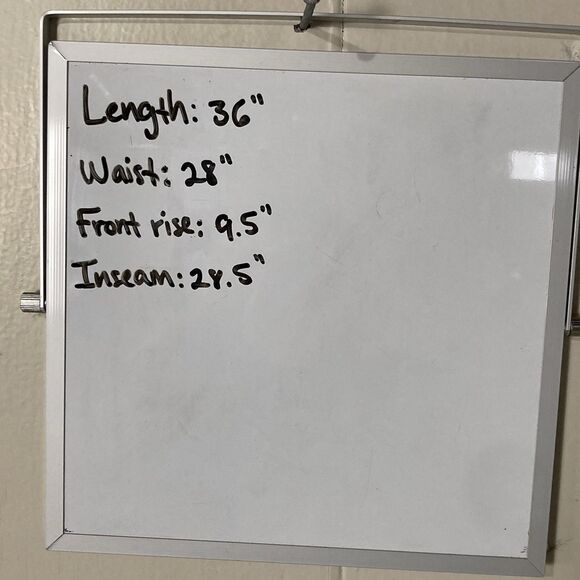 Length: 36"
Waist: 28"
Front rise: 9.5"
Inseam: 28.5"